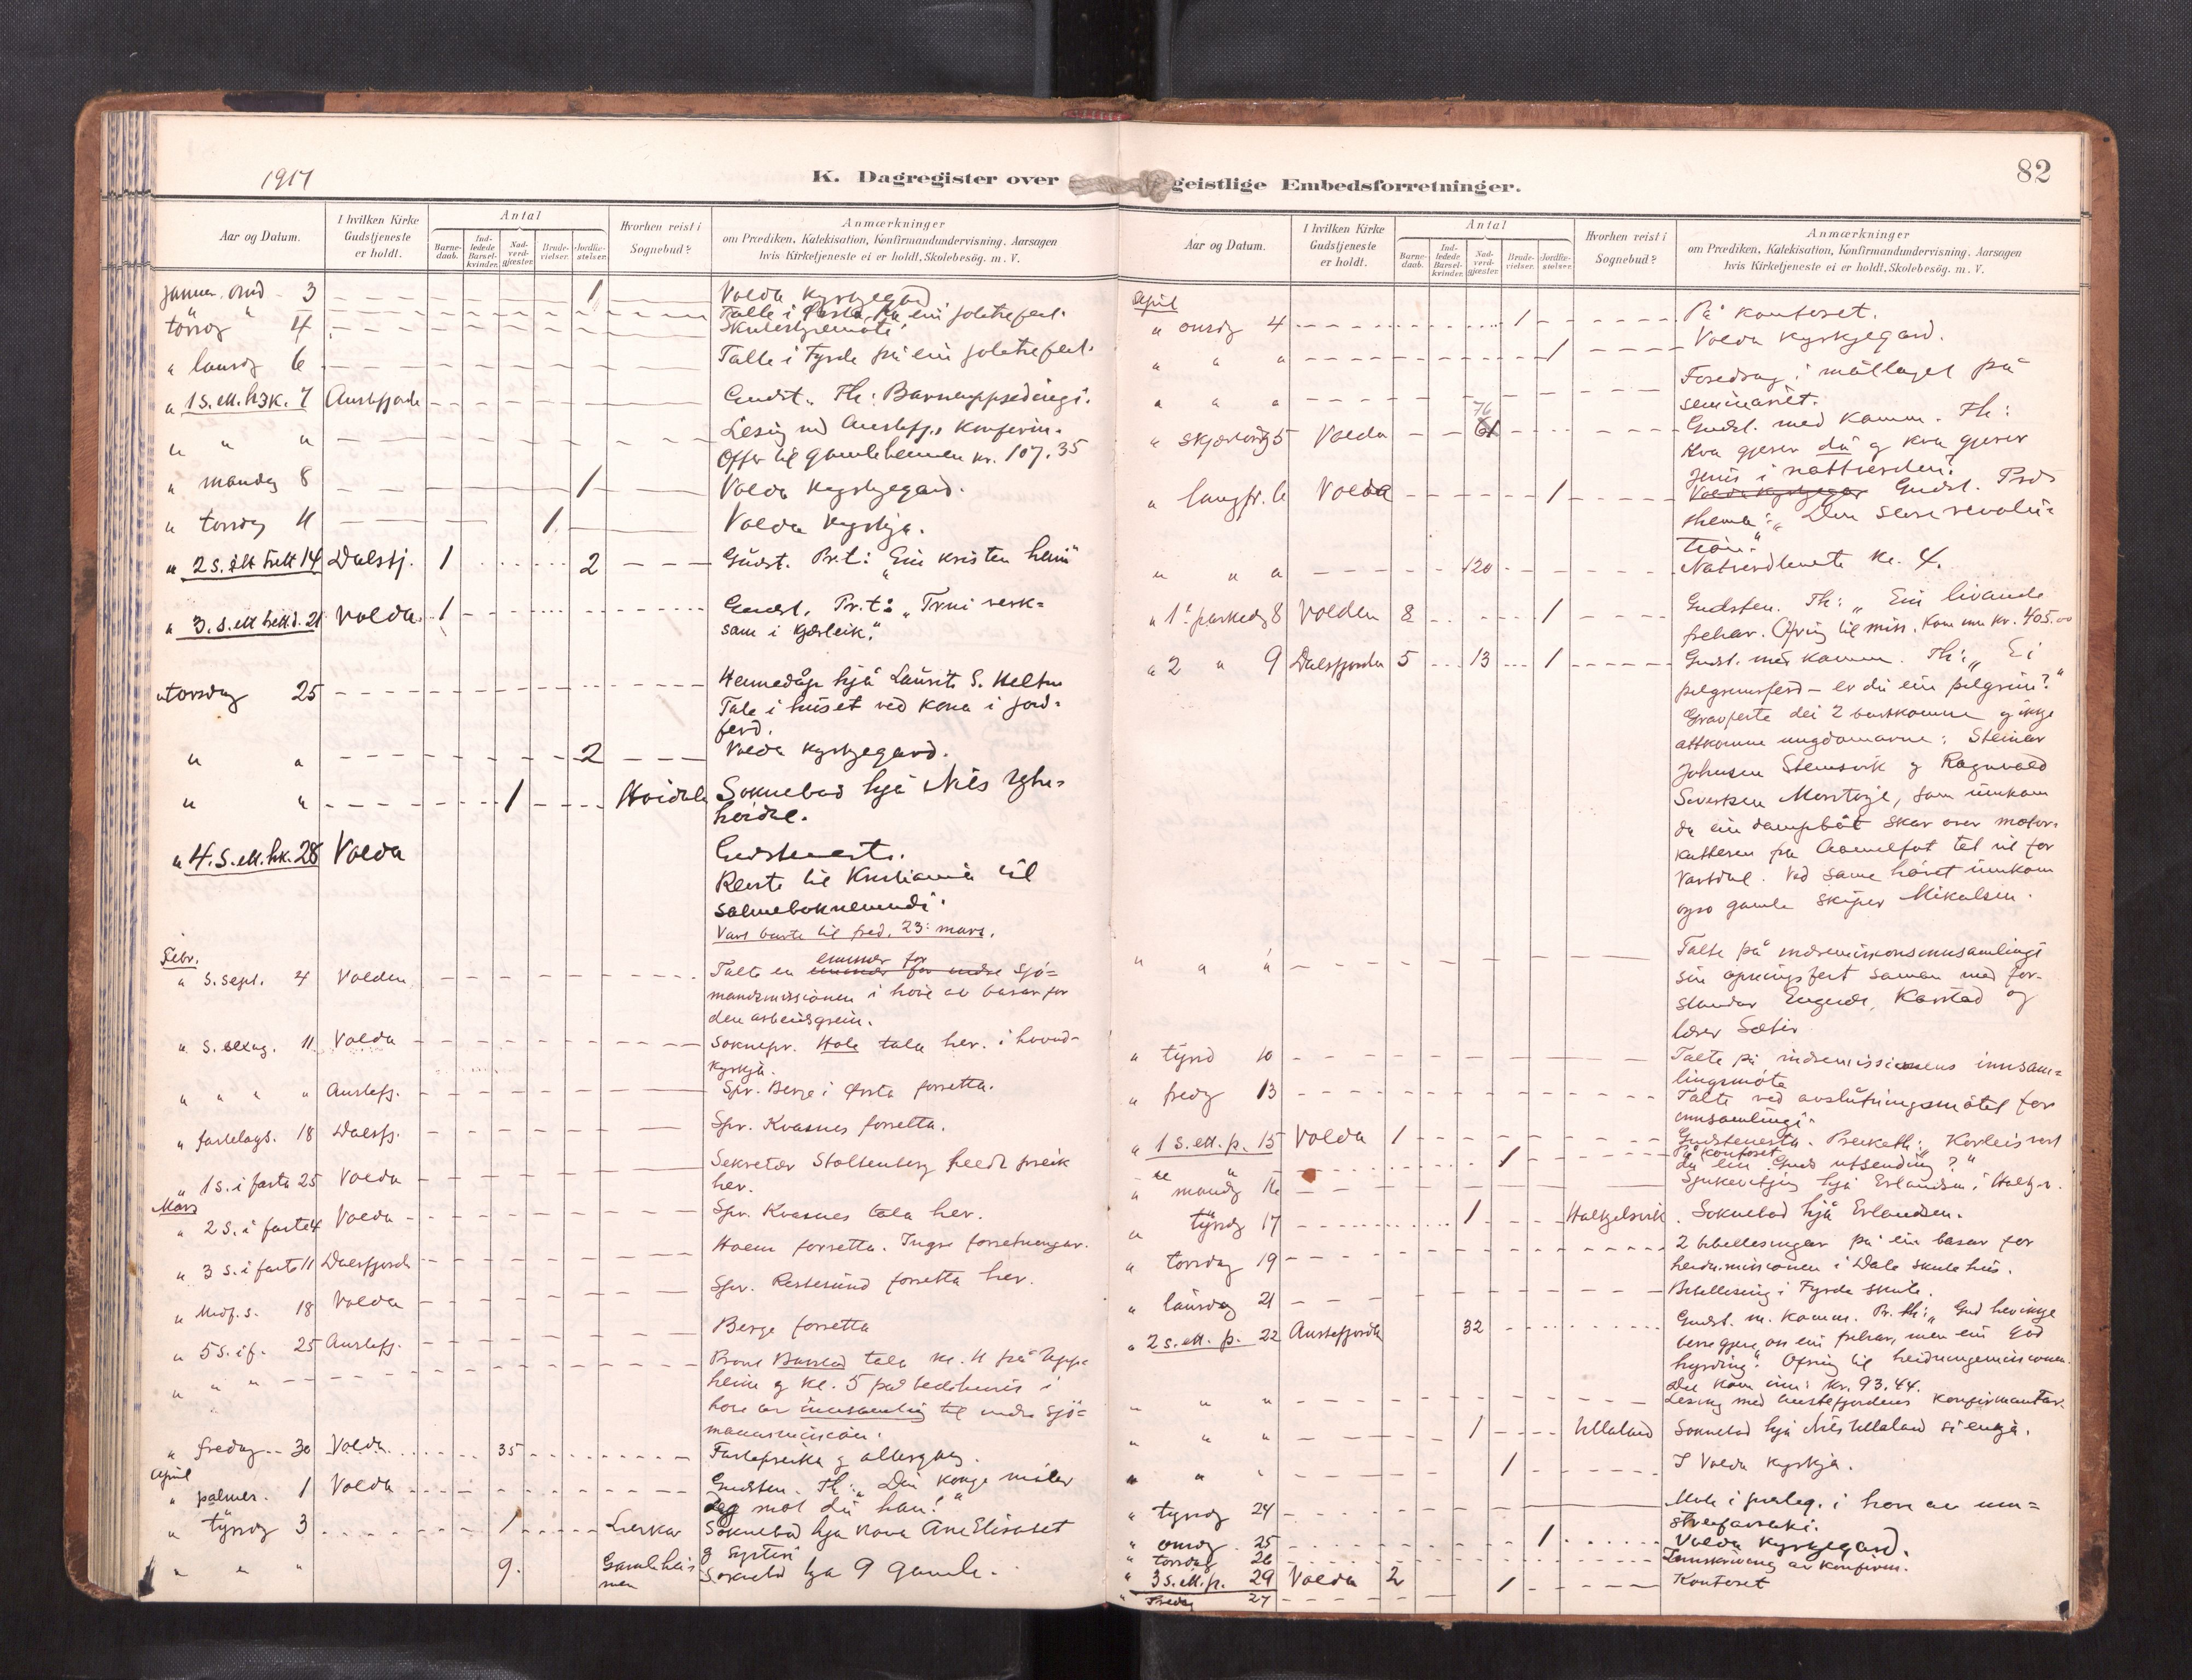 1917
K. Dagregister over
Aar og Datum.
I hvilken Kirke Gudstjeneste er holdt.
Antal
Barne-daab.
Ind-ledede Barsel-kvinder.
Nad-verd-gjæster.
Brude-vielser.
Jordfæ-stelser.
Hvorhen reist i Sognebud?
Anmærkninger
om Prædiken, Katekisation, Konfirmandundervisning. Aarsagen
hvis Kirketjeneste ei er holdt. Skolebesøg. m. V.
Januar. onsd 3 1 Volda kyrkjegard
torsdg " 4 Talte i Ørsta på ein joletrefest.
Skulestyremøte
" laurdg 6 Talte i Fyrde på ein joletrefest.
" 1 s. ett. h3k. 7 Austefjorde Gudst. Th: Barneuppsedingi.
" " " Lesing med Austefj.s konfirm.
Offer til gamleheimen kr. 107.35
" mandag 8 1 Volda kyrkjegard.
" torsdag 11 1 Volda kyrkja.
" 2 s. ett. hell 14 Dalsfj. 1 2 Gudst. Pr.t: "Ein kristen heim"
" 3. s. ett hell d. 21 Volda. 1 Gudst. Pr.t: "Trui verk=
sam i kjærleik."
" torsdag 25 Heimedåp hjå Laurits S. Heltne
Tale i huset ved kona i jord=
ferd.
" " 2 Volda kyrkjegard.
" " 1 Høidale Soknebod hjå Nils
høidal.
" 4. s. ett. hk. 28 Volda Gudstenesta.
Reiste til Kristiania til
salmeboknemndi.
Var burte til fred. 23: mars.
Febr.
" S. sept. 4 Volden Talte en emmer for sjø=
mandsmissionen i høve av basar for
den arbeidsgrein.
" S. sexag. 11 Volda Soknepr. Hole tala her. i hovud-
kyrkja.
" " " " Austefj. Spr. Berge i Ørsta forretta.
" fastelags. 18 Dalsfj. Spr. Kvasnes forretta.
" 1 s. i fasta 25 Volda Sekretær Stoltenberg heldt preik
her.
Mars
" 2 s. i faste 4 Volda Spr. Kvasnes tala her.
" 3 s. i faste 11 Dalsfjord Hoem forretta. Ingre forretningar.
" Midf.s. 18 Volda Spr. Restesund forretta her.
" 5 s. i f. 25 Austefj. Berge forretta
" " " Prove Barstad tala kl. 11 på Uppheim
og kl. 5 på bedehuset i
høve av innsamling til indre sjø=
mannsmission.
" fredag 30 Volda 35 Fastepreika og altergang.
April
" palmes. 1 Volda Gudsten. Th: "Din konge møter
deg møt du han!"
" tyrsdg 3 1 Soknebod hja kona Ane Elisabet
" " " 9. Gamlehei=
men Soknebod hja 9 gamle.
82
geistlige Embedsforretninger.
Aar og Datum.
I hvilken Kirke Gudstjeneste er holdt.
Antal
Barne-daab.
Ind-ledede Barsel-kvinder.
Nad-verd-gjæster.
Brude-vielser.
Jordfæ-stelser.
Hvorhen reist i Sognebud?
Anmærkninger
om Prædiken, Katekisation, Konfirmandundervisning. Aarsagen
hvis Kirketjeneste ei er holdt. Skolebesøg. m. V.
April
" onsdg 4 1 På kontoret.
" " " 1 Volda kyrkjegard.
" " " Foredrag i mållaget på
seminariet.
" skjærtorsdg 5 Volda 76 61 Gudst. med komm. Th:
Kva gjerer du og kva gjerer
Jesus i nattverden?
" langfr. 6 Volda 1 Volda kyrkjegar Gudst. Prds
thema: "Den store revolu=
tion."
" " " 120 Natverdteneste kl. 4.
" 1ste paaskedg 8 Volden 8 1 Gudsten. Th: "Ein livande
frelsar. Ofring til miss. Kom inn kr. 405.00
" 2 " 9 Dalsfjorden 5 13 1 Gudst. med komm. Th: "Ei
pilgrimsferd – er du ein pilgrim?"
Gravferta dei 2 burtkomne og ikkje
attkomne ungdomarne: Steinar
Johnsen Steinsvik og Ragnvald
Sivertsen , som umkom
då ein dampbåt skar over motor=
kutteren fra Aamelfot tet ut for
Vartdal. Ved same høvet umkom
ogso gamle skipper Mikalsen.
" " " Talte på indremissionsinnsamlingi
sin opningsfest saman med for-
standar Engeset, Karstad og
lærer Sæter
" tyrsd 10 Talte på indremissionens innsam=
lingsmøte
" fredg 13 Talte ved avslutningsmøtet for
innsamlingi.
" 1 s. ett. p. 15 Volda 1 Gudstenesta. Preiketh: "Korleis vert
du ein Guds utsending?"
" " 1 På kontoret
" mandg 16 Sjukevitjing hjå Erlandsen i
" tyrsdg 17 1 Halkjelsvik. Soknebod hjå Erlandsen.
" torsdag 19 2 bibellesingar på ein basar for
heidn.missionen i Dale skulehus.
" laurdag 21 Bibellesing i Fyrde skule.
" 2 s. ett. p. 22 Austefjorde 32 Gudst. m. komm. Pr. th: "Gud hev ikkje
berre gjeve oss ein frelsar, men ein god
hyrding." Ofring til heidningemissionen.
Det kom inn: kr. 93.44.
" " " Lesing med Austefjordens konfirmantar.
" " " 1 Ullaland Soknebod hjå Nils Ullaland si enkja.
" " " 1 I Volda kyrkja.
" tyrsdg 24 Møte i i høve av
" onsdg 25 1 Volda kyrkjegard.
" torsdag 26 Innskriving av konfirm.
" 3 s. ett. p. 29 Volda 2 1 Kontoret
" Fredag 27